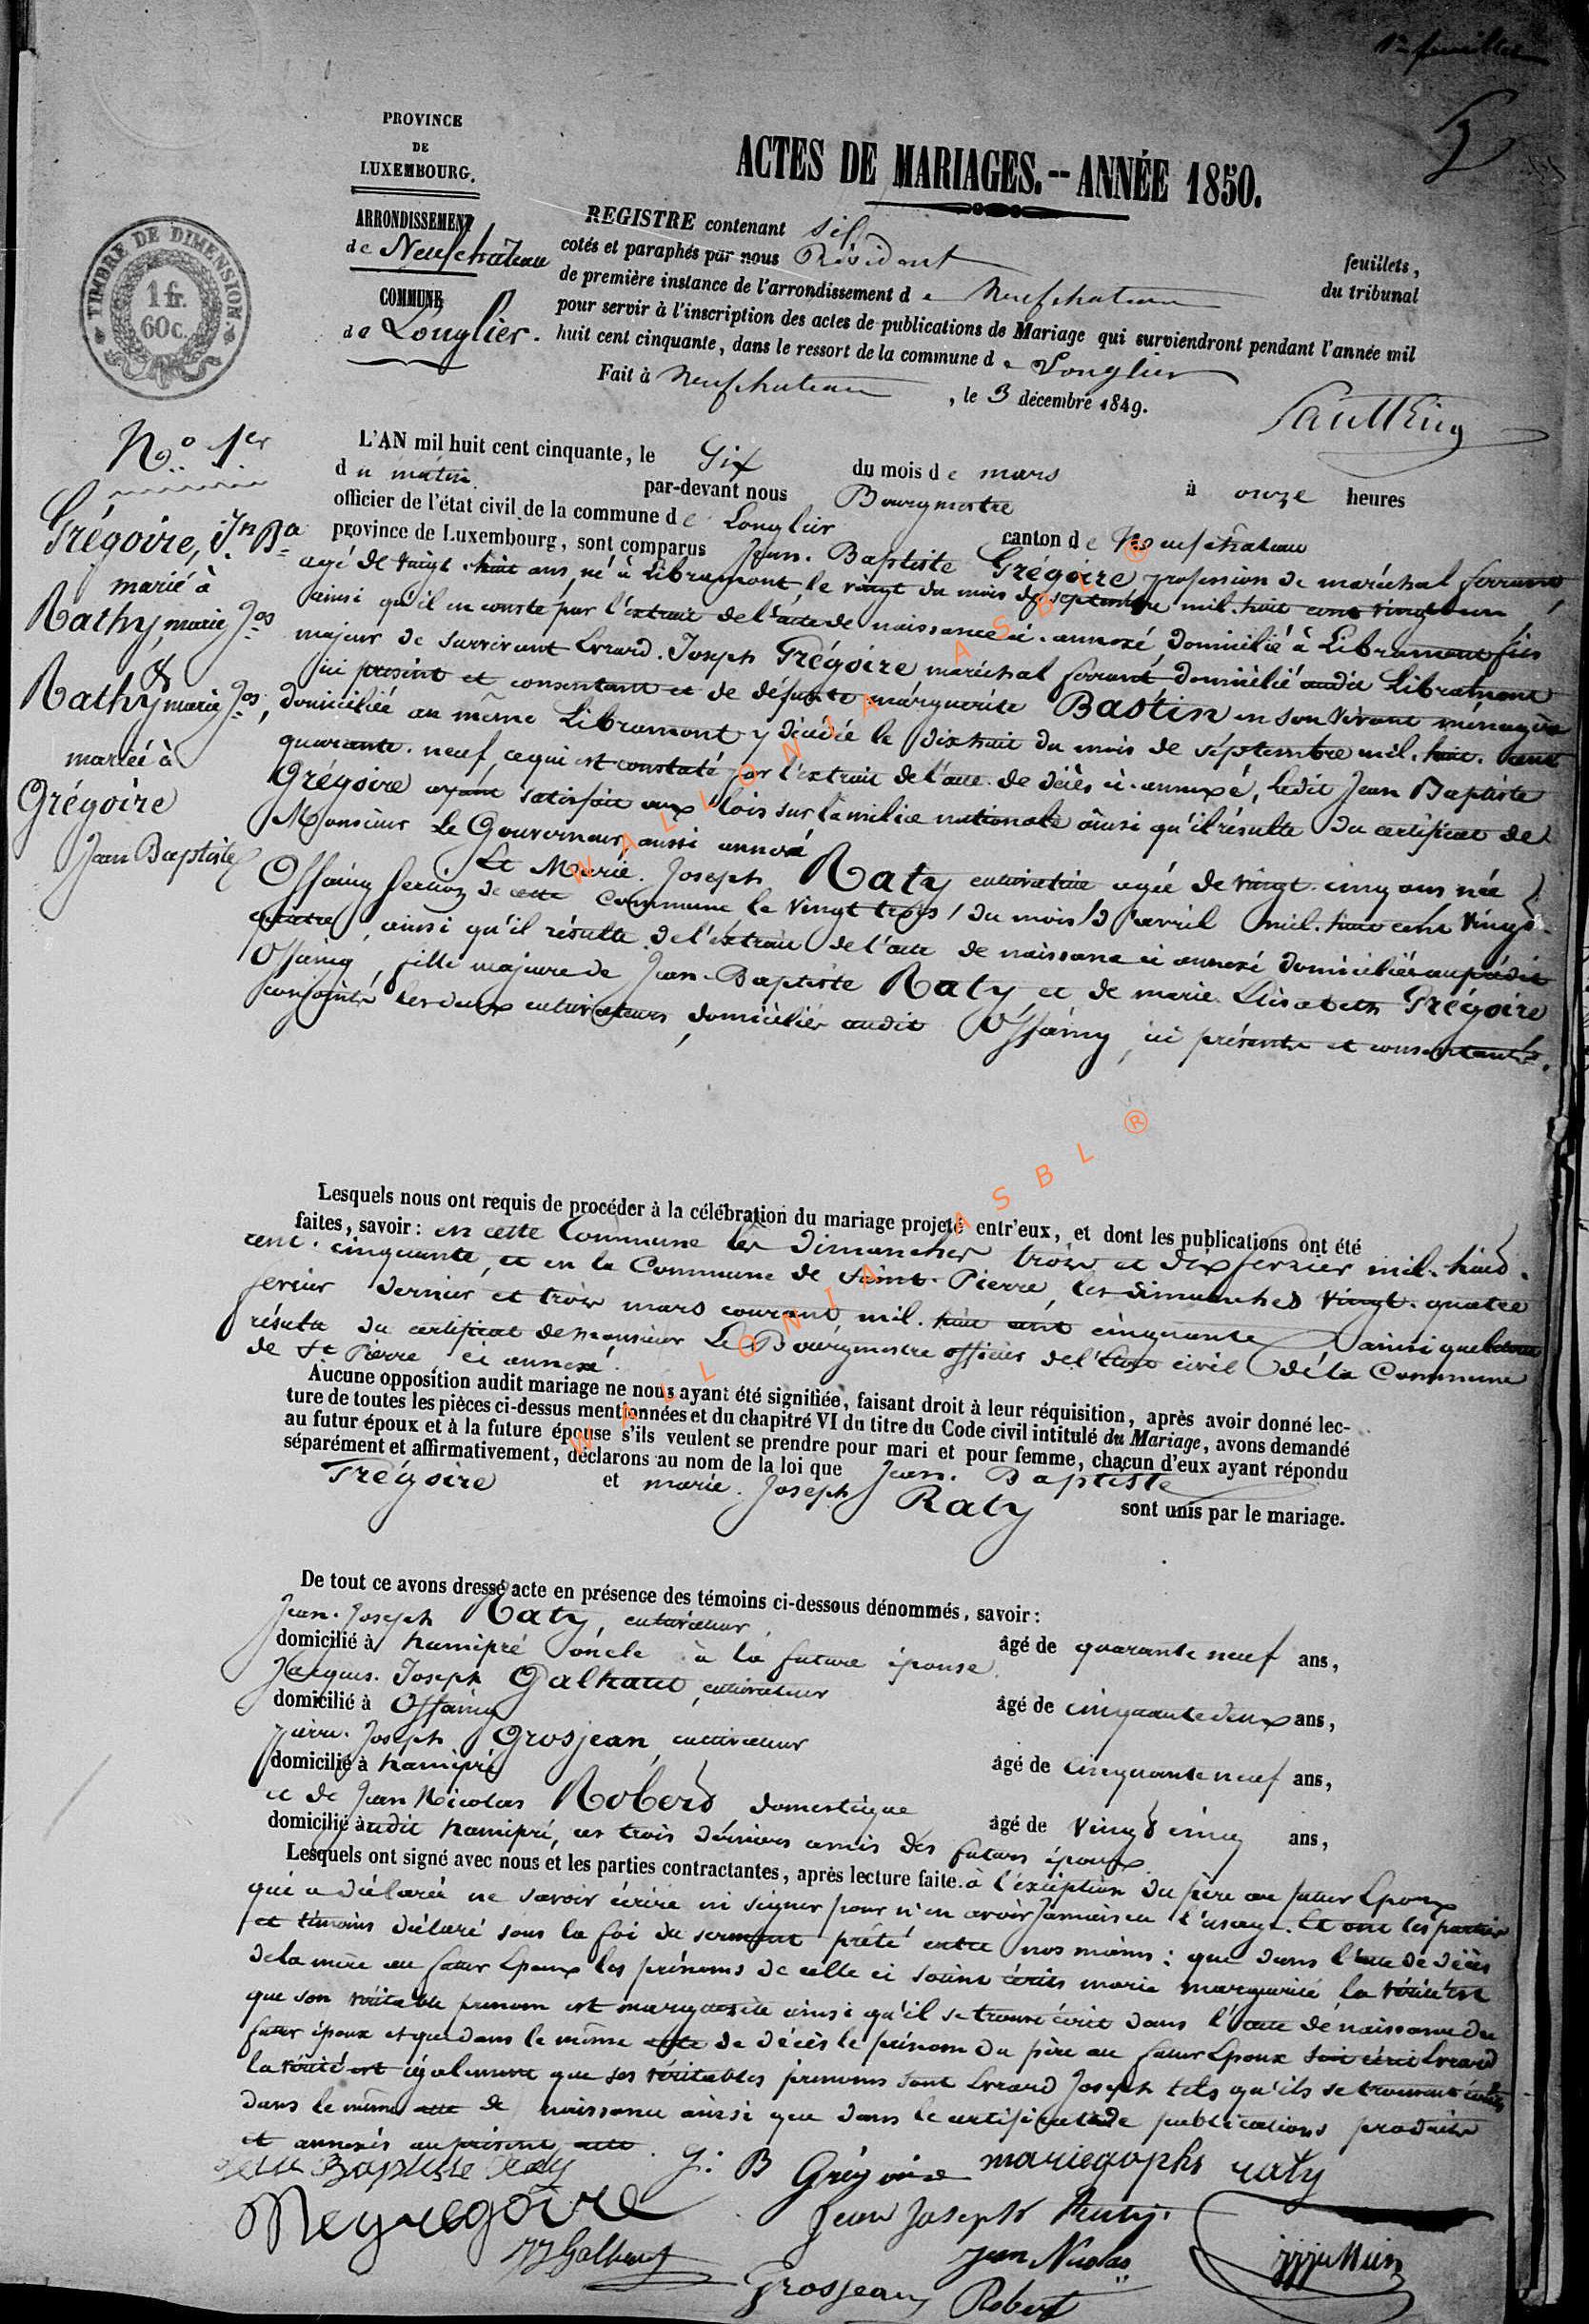 1er feuillet
PROVINCE
DE
LUXEMBOURG.
ARRONDISSEMENT
de Neufchâteau
COMMUNE
de Longlier.
TIMBRE DE DIMENSION
1 fr.
60c.
ACTES DE MARIAGES.-- ANNÉE 1850.
REGISTRE contenant six feuillets,
cotés et paraphés par nous Président du tribunal
de première instance de l'arrondissement de Neufchateau
pour servir à l'inscription des actes de publications de Mariage qui surviendront pendant l'année mil
huit cent cinquante, dans le ressort de la commune de Longlier
Fait à Neufchateau, le 3 décembre 1849.
No. 1er
Grégoire, Jn Bа
marié à
Rathy, marie Jos
&
Rathy marie Jos,
mariée à
Grégoire
Jean Baptiste
L'AN mil huit cent cinquante, le Six du mois de mars à onze heures
du matin par-devant nous Bourgmestre
officier de l'état civil de la commune de Longlier canton de Neufchâteau
province de Luxembourg, sont comparus Jean-Baptiste Grégoire, profession de maréchal ferrant,
agé de vingt-huit ans, né à Libramont, le vingt du mois de septembre mil-huit cent vingt un
ainsi qu'il en conste par l'extrait de l'acte de naissance ci-annexé domicilié à Libramont fils
majeur de survivant Evrard-Joseph Grégoire, maréchal ferrant domicilié audit Libramont
ici présent et consentant et de défunte marguerite Bastin en son vivant ménagère
domiciliée au même Libramont y décédée le dix huit du mois de septembre mil-huit-cent
quarante-neuf, ce qui est constaté par l'extrait de l'acte de décès ci-annexé, ledit Jean Baptiste
Grégoire ayant satisfait aux lois sur la milice nationale ainsi qu'il résulte du certificat de
Monsieur Le Gouverneur, aussi annexé
Et Marie-Joseph Raty cultivatrice agée de vingt-cinq ans née à
Offaing section de cette Commune le vingt trois du mois d'avril mil-huit cent vingt-
quatre, ainsi qu'il résulte de l'extrait de l'acte de naissance ci annexé domiciliée au prédit
Offaing, fille majeure de Jean-Baptiste Raty, et de marie Elisabeth Grégoire
conjoints les deux cultivateurs, domiciliés audit Offaing, ici présents et consentants.
Lesquels nous ont requis de procéder à la célébration du mariage projeté entr'eux, et dont les publications ont été
faites, savoir: en cette Commune les Dimanches trois et dix fevrier mil-huit-
cent-cinquante, et en la Commune de Saint-Pierre, les dimanches vingt-quatre
fevrier dernier et trois mars courant, mil-huit cent cinquante ainsi que le tout
résulte du certificat de monsieur Le Bourgmestre officier de l'état civil de la Commune
de St Pierre ci annexé.
Aucune opposition audit mariage ne nous ayant été signifiée, faisant droit à leur réquisition, après avoir donné lec-
ture de toutes les pièces ci-dessus mentionnées et du chapitre VI du titre du Code civil intitulé du Mariage, avons demandé
au futur époux et à la future épouse s'ils veulent se prendre pour mari et pour femme, chacun d'eux ayant répondu
séparément et affirmativement, déclarons au nom de la loi que Jean-Baptiste
Grégoire et marie-Joseph Raty sont unis par le mariage.
De tout ce avons dressé acte en présence des témoins ci-dessous dénommés, savoir:
Jean-Joseph Raty, cultivateur, âgé de quarante neuf ans,
domicilié à hamipré oncle à la future épouse
Jacques-Joseph Galhaut, cultivateur âgé de cinquante deux ans,
domicilié à Offaing
Pierre-Joseph Grosjean, cultivateur âgé de cinquante neuf ans,
domicilié à hamipré
et de Jean Nicolas Robert domestique âgé de vingt cinq ans,
domicilié audit hamipré, ces trois derniers amis des futurs époux
Lesquels ont signé avec nous et les parties contractantes, après lecture faite. à l'exéption du père au futur Epoux
qui a déclaré ne savoir écrire ni signer pour n'en avoir jamais eu l'usage. Et ont les parties
et témoins déclaré sous la foi du serment prété entre nos mains: que dans l'acte de décès
de la mère au futur Epoux les prénoms de celle ci soient écrits marie marguerite la vérité est
que son véritable prenom est marguerite ainsi qu'il se trouve écrit dans l'acte de naissance du
futur époux et que dans le même acte de décès le prénom du père au futur Epoux soit écrit Evrard
la vérité est également que ses véritables prenoms sont Evrard Joseph tels qu'ils se trouvent écrits
dans le même acte de naissance ainsi que dans le certificat de publications produits
et annexés au présent acte.
Jean Baptiste Raty J. B Grégoire mariegophs raty
Megregoire Jean Joseph Raty.
JJ Galhaut Jean Nicolas
Grosjean Robert
WALLONIA ASBL ®
WALLONIA ASBL ®